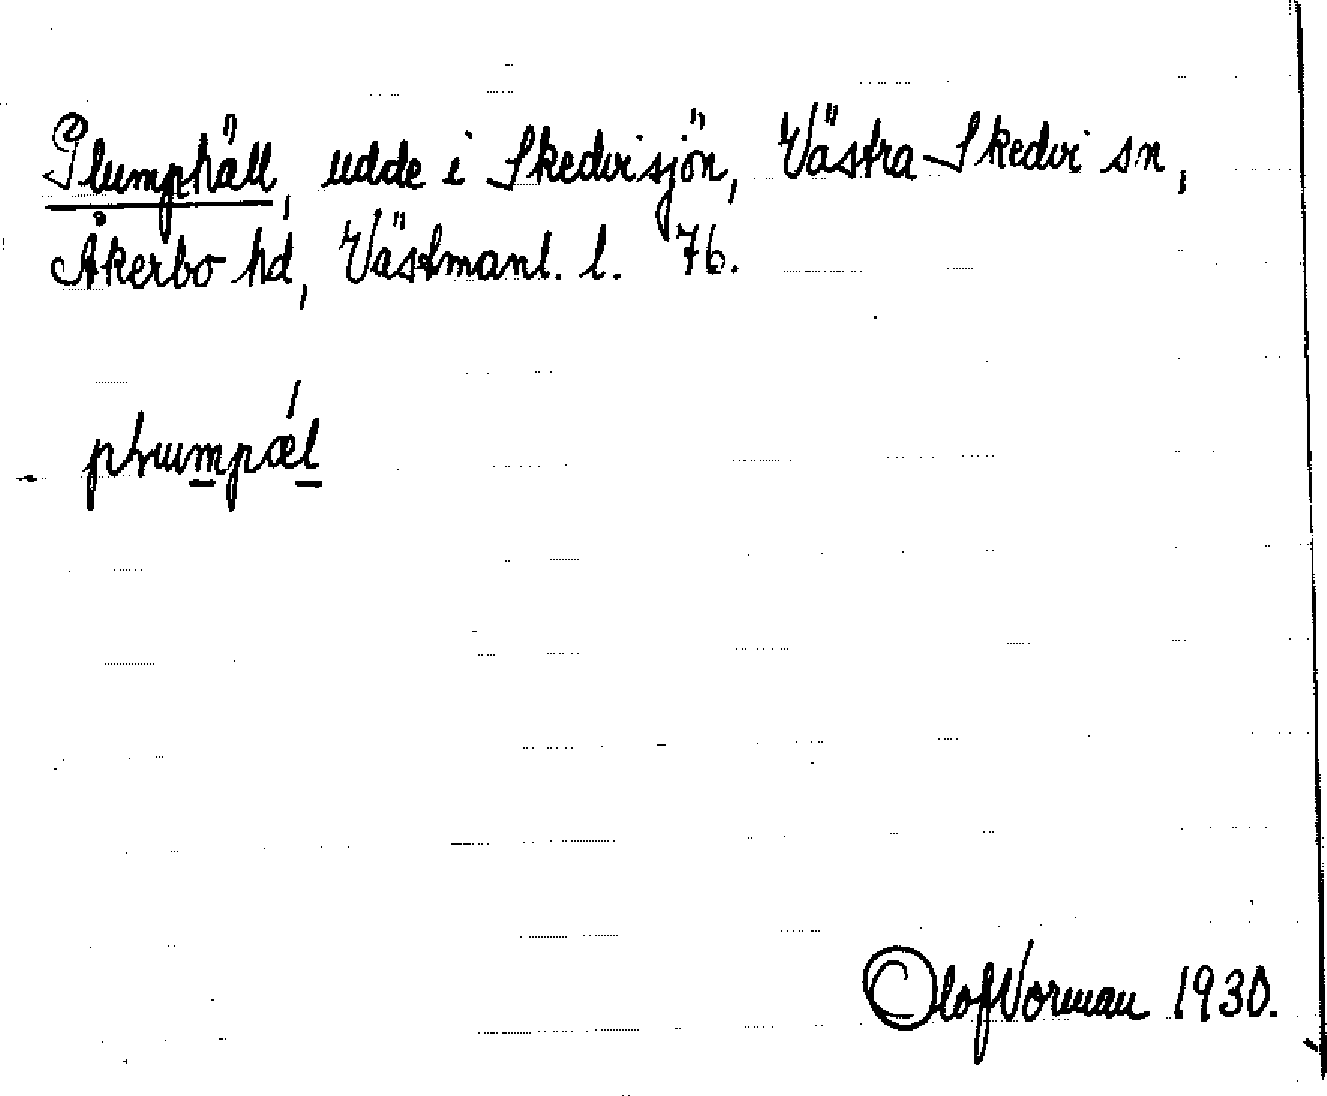 Plumphäll, udde i Skedvisjön, Västra Skedvi sn,
Åkerbo hd, Västmanl. l. 76.
Olof Norman 1930.